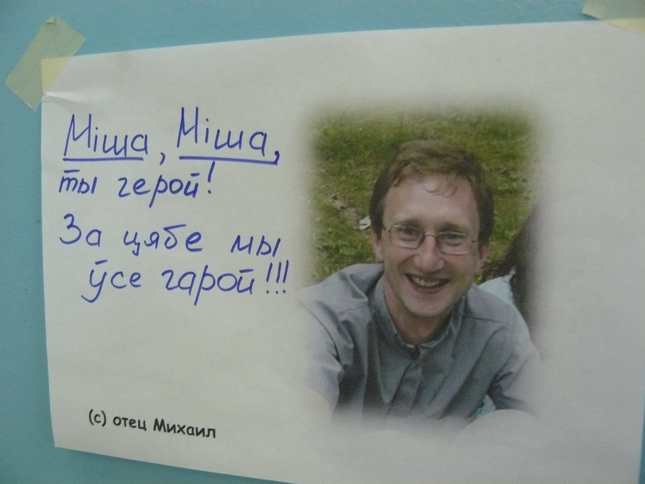 Міша, Міша,
ты герой!
За цябе мы
ўсе гарой!!!
(c) отец Михаил